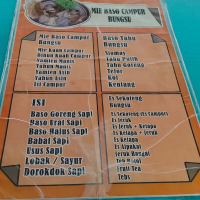 MIE BASO CAMPUR
BUNGSU
Mie Baso Campur
Bungsu
Mie Baso Campur
Yamien Manis
Yahun Manis
Yamien Asin
Yahun Asin
Isi Campur
Baso Tahu
Bungsu
Siomay
Tahu Putih
Tahu Goreng
Telor
Kol
Kentang
ISI
Baso Goreng Sapi
Baso Urat Sapi
Baso Halus Sapi
Babat Sapi
Usus Sapi
Lobak / Sayur
Dorokdok Sapi
Es Sekoteng
Bungsu
Es Sekoteng
Es Jeruk
Es Jeruk + Kelapa
Es Kelapa + Jeruk
Es Kelapa
Es Alpukat
Jeruk Hangat
Teh Botol
Fruit Tea
Tebs